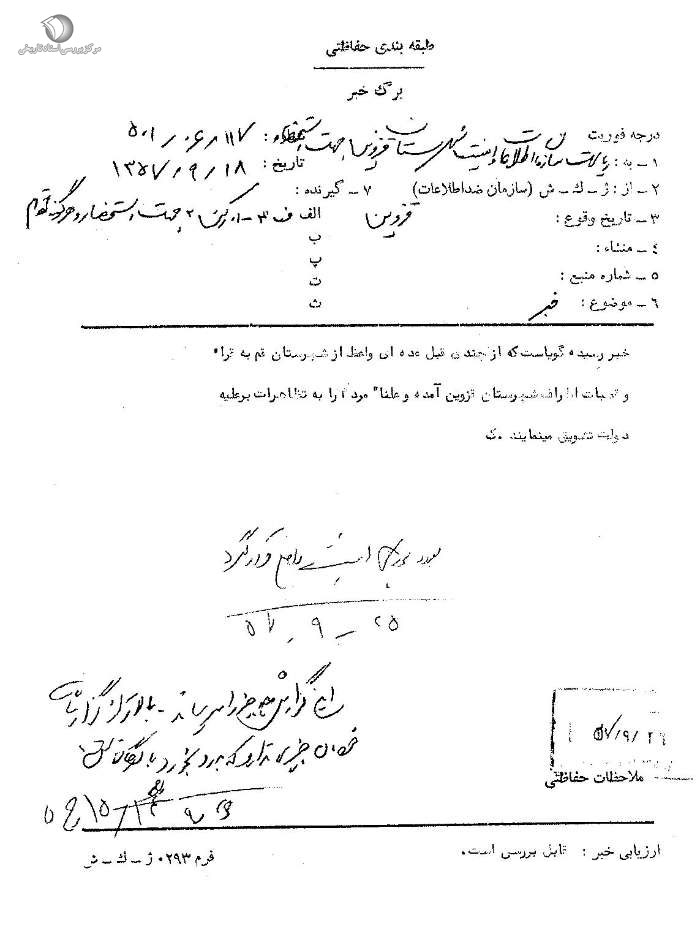 مرکز بررسی اسناد تاریخی
طبقه بندی حفاظتی
برگ خبر
درجه فوریت
۱ – به : ریاست سازمان اطلاعات و امنیت شهرستان قزوین جهت استحضار : ۵۰۱/۰۶/۱۱۷
تاریخ : ۱۳۵۷/۹/۱۸
۲ – از : ژ – ك – ش (سازمان ضداطلاعات) ۷ – گیرنده :
۳ – تاریخ وقوع : قزوین الف ف ۳ – ۱۰ رکن ۲ جهت استحضار و هرگونه اقدام
۴ – منشاء : ب
پ
۵ – شماره منبع : ت
۶ – موضوع : خبر ث
خبر رسیده گویاست که از چندی قبل عده ای واعظ از شهرستان قم به قراء
و قصبات اطراف شهرستان قزوین آمده و علناً مردم را به تظاهرات برعلیه
دولت تشویق مینمایند .ك
قرار گیرد
۵۷ – ۹ – ۲۵
این گزارش هیچ چیز را نمیرساند –
چیزی ندارد که بدرد بخورد
۵۷/۹/۲۶
ملاحظات حفاظتی
ارزیابی خبر : قابل بررسی است.
فرم ۰۲۹۳ ژ – ك – ش